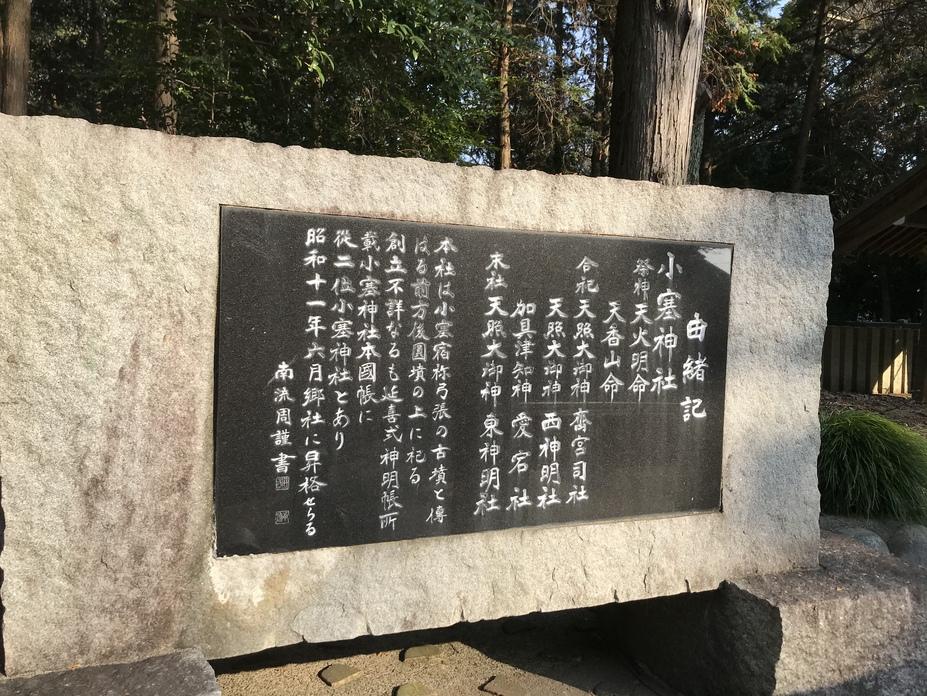 由緒記
小塞神社
祭神 天火明命
天香山命
合祀 天照大御神 齊宮司社
天照大御神 西神明社
加具津知神 愛宕社
末社 天照大御神 東神明社
本社は小塞宿祢弓張の古墳と傳
はる前方後圓墳の上に祀る
創立不詳なるも延喜式神明帳所
載小塞神社本國帳に
從二位小塞神社とあり
昭和十一年六月郷社に昇格せらる
南流周謹書